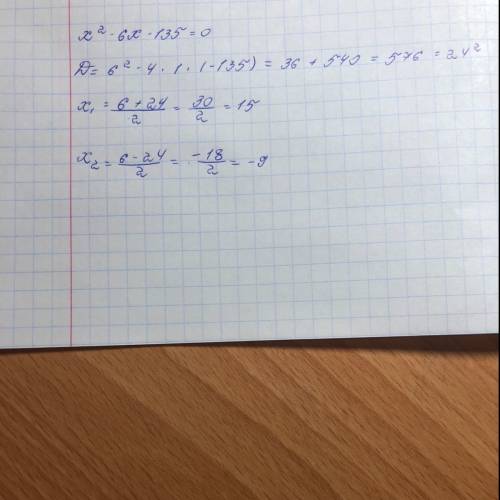 x² - 6x - 135 = 0
D = 6² - 4 · 1 · (-135) = 36 + 540 = 576 = 24²
x₁ = (6 + 24)/2 = 30/2 = 15
x₂ = (6 - 24)/2 = -18/2 = -9